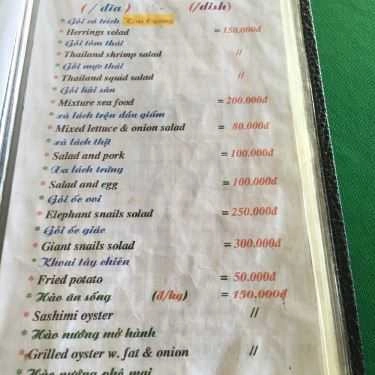 (/ dĩa ) (/dish)
* Gỏi cá trích
* Herrings solad = 150.000đ
* Gỏi tôm thái
* Thailand shrimp salad //
* Gỏi mực thái
* Thailand squid salad //
* Gỏi hải sản
* Mixture sea food = 200.000đ
* xà lách trộn dầu giấm
* Mixed lettuce & onion salad = 80.000đ
* xà lách thịt
* Salad and pork = 100.000đ
* Xa lách trứng
* Salad and egg = 100.000đ
* Gỏi ốc voi
* Elephant snails solad = 250.000đ
* Gỏi ốc giác
* Giant snails solad = 300.000đ
* Khoai tây chiên
* Fried potato = 50.000đ
* Hào ăn sống (đ/kg) = 150.000đ
* Sashimi oyster //
* Hào nướng mở hành
* Grilled oyster w. fat & onion //
* Hào nướng phô mai